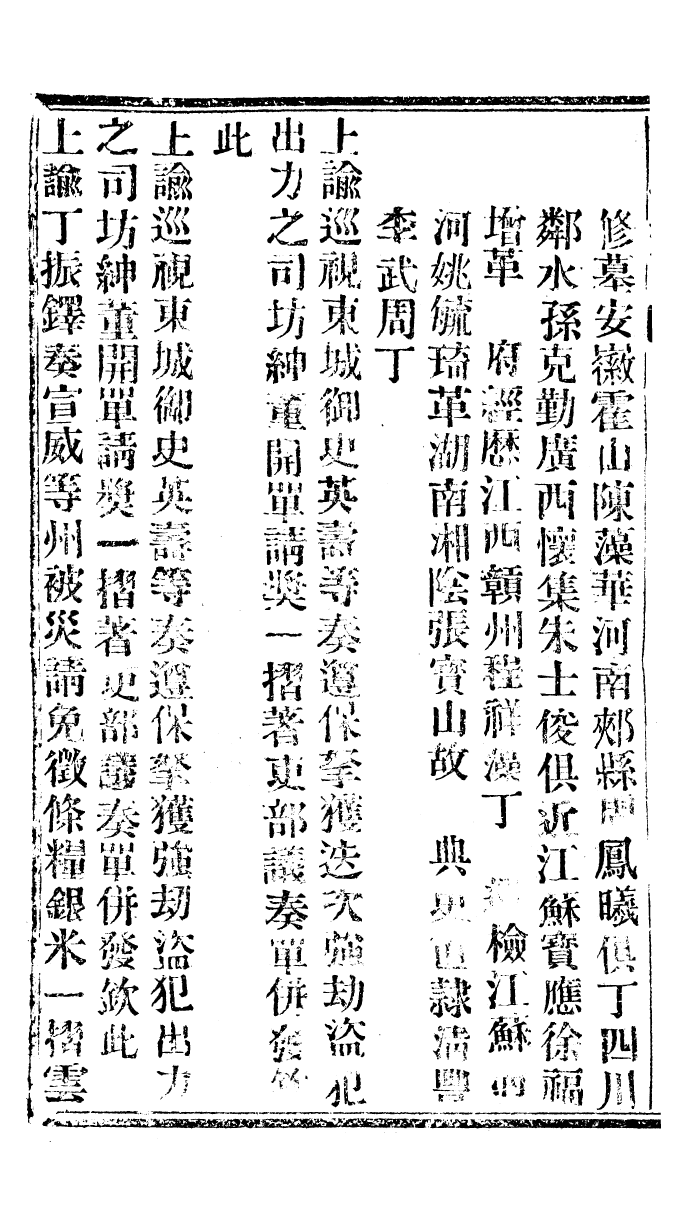 修墓安徽霍山陳藻華河南郟縣鳳曦俱丁四川
鄰水孫克勤廣西懷集朱士俊俱近江蘇寶應徐福
增革　府經歷江西贛州程祥藻丁　檢江蘇
河姚毓琦革湖南湘陰張寶山故　典史直隸清豐
李武周丁
上諭巡視東城御史英壽等奏遵保拏獲迭次強劫盜犯
出力之司坊紳董開單請獎一摺著吏部議奏單併發欽
此
上諭巡視東城御史英壽等奏遵保拏獲強劫盜犯出力
之司坊紳董開單請獎一摺著吏部議奏單併發欽此
上諭丁振鐸奏宣威等州被災請免徵條糧銀米一摺雲